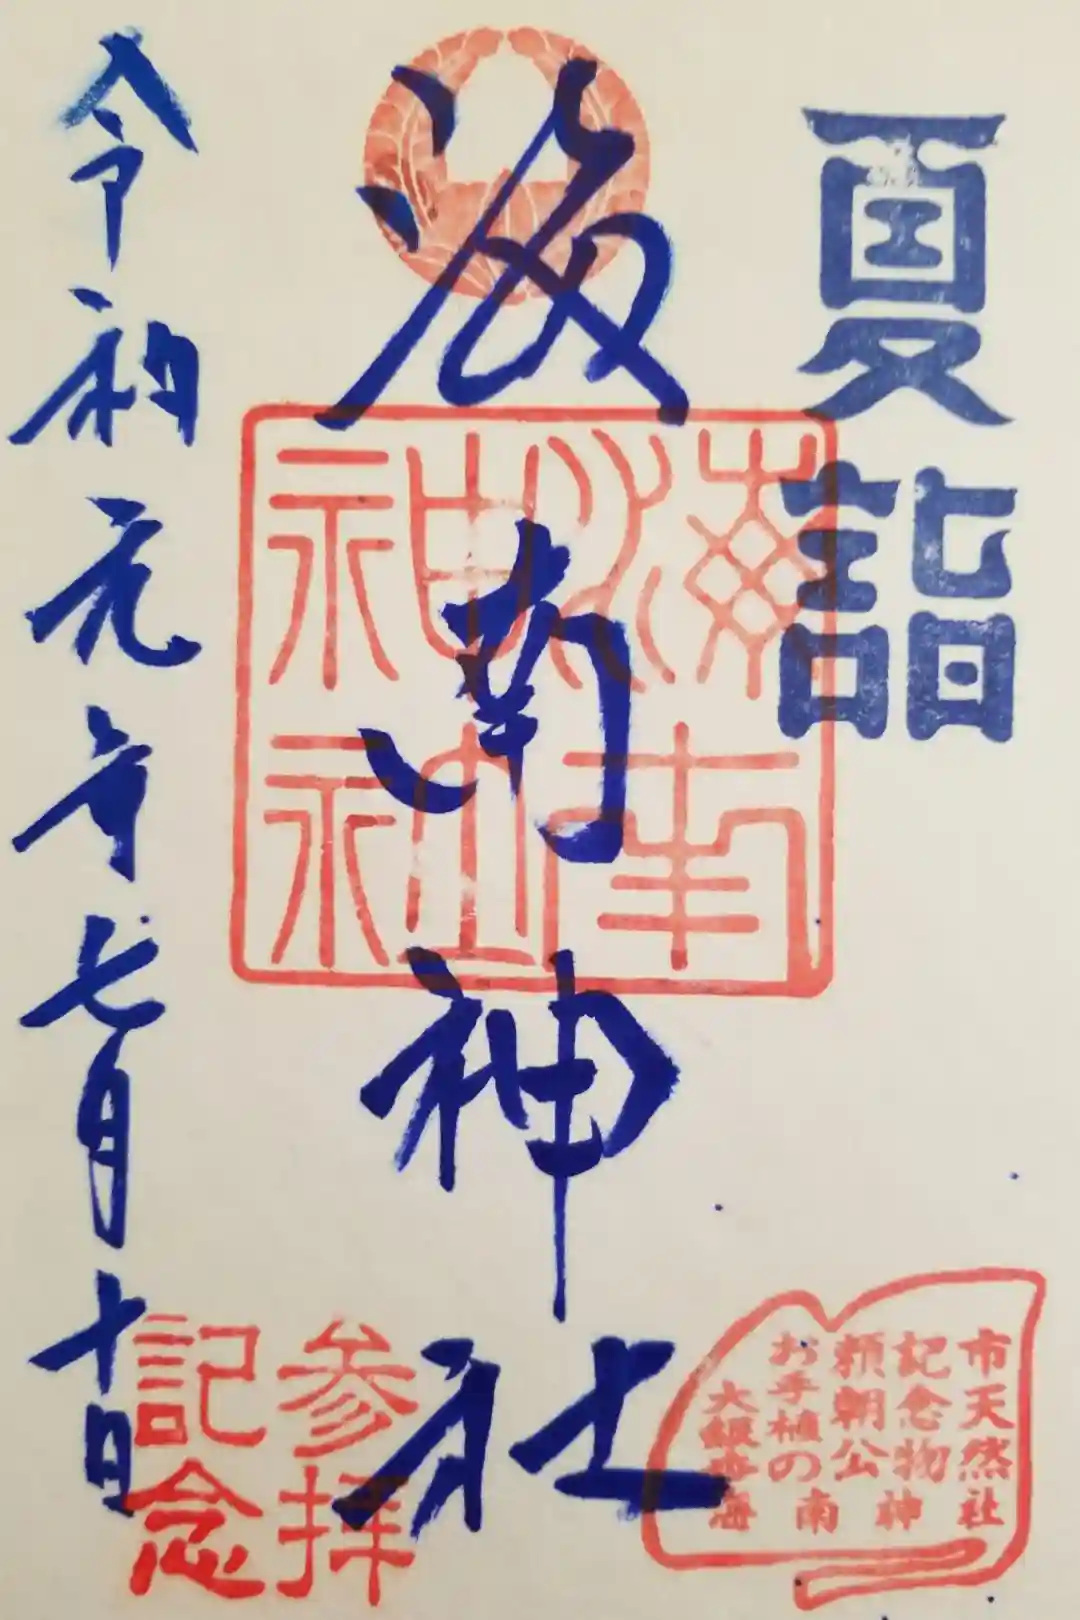 夏詣
海南神社
海南
神社
神山
令和元年七月十日
参拝
記念
市天然
記念物
頼朝公
お手植の
大銀杏
海南神社